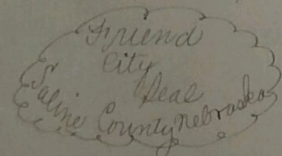 Friend
City
Seal
Saline County Nebraska